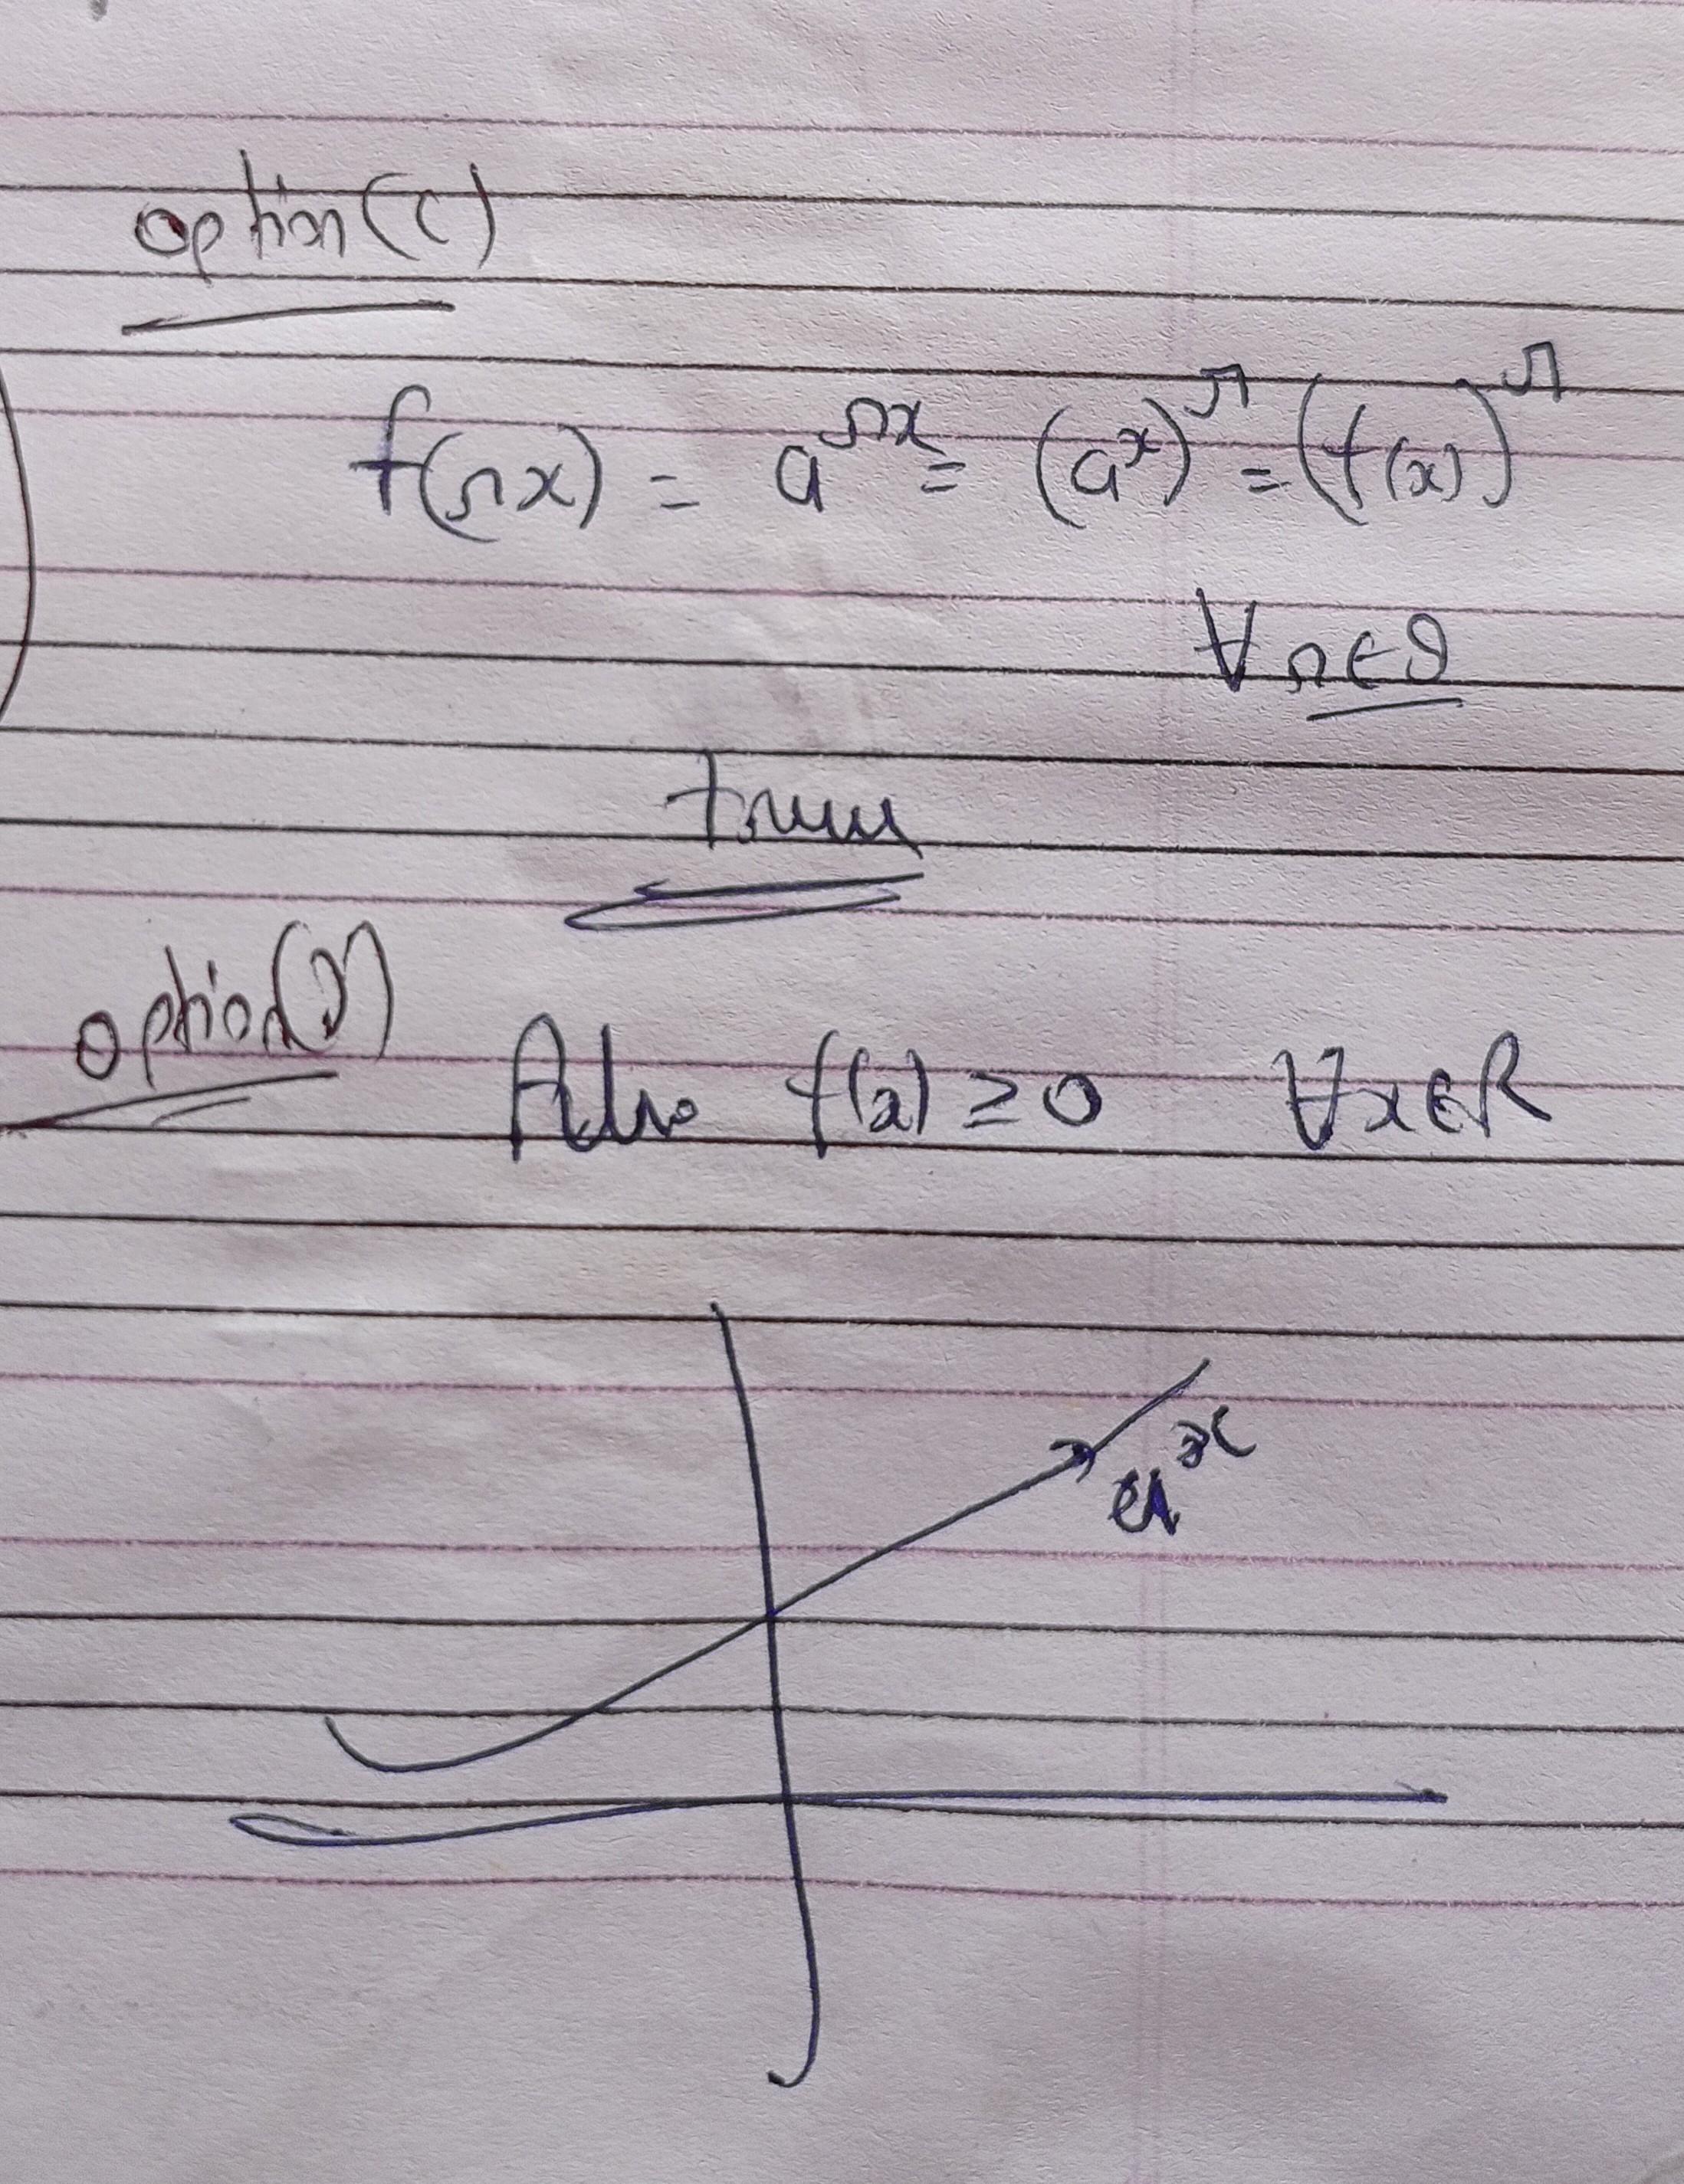 option (C)
f(rx) = a^{rx} = (a^x)^r = (f(x))^r
∀ r ∈ Q
true
option (D) Also f(x) ≥ 0 ∀ x ∈ R
a^x